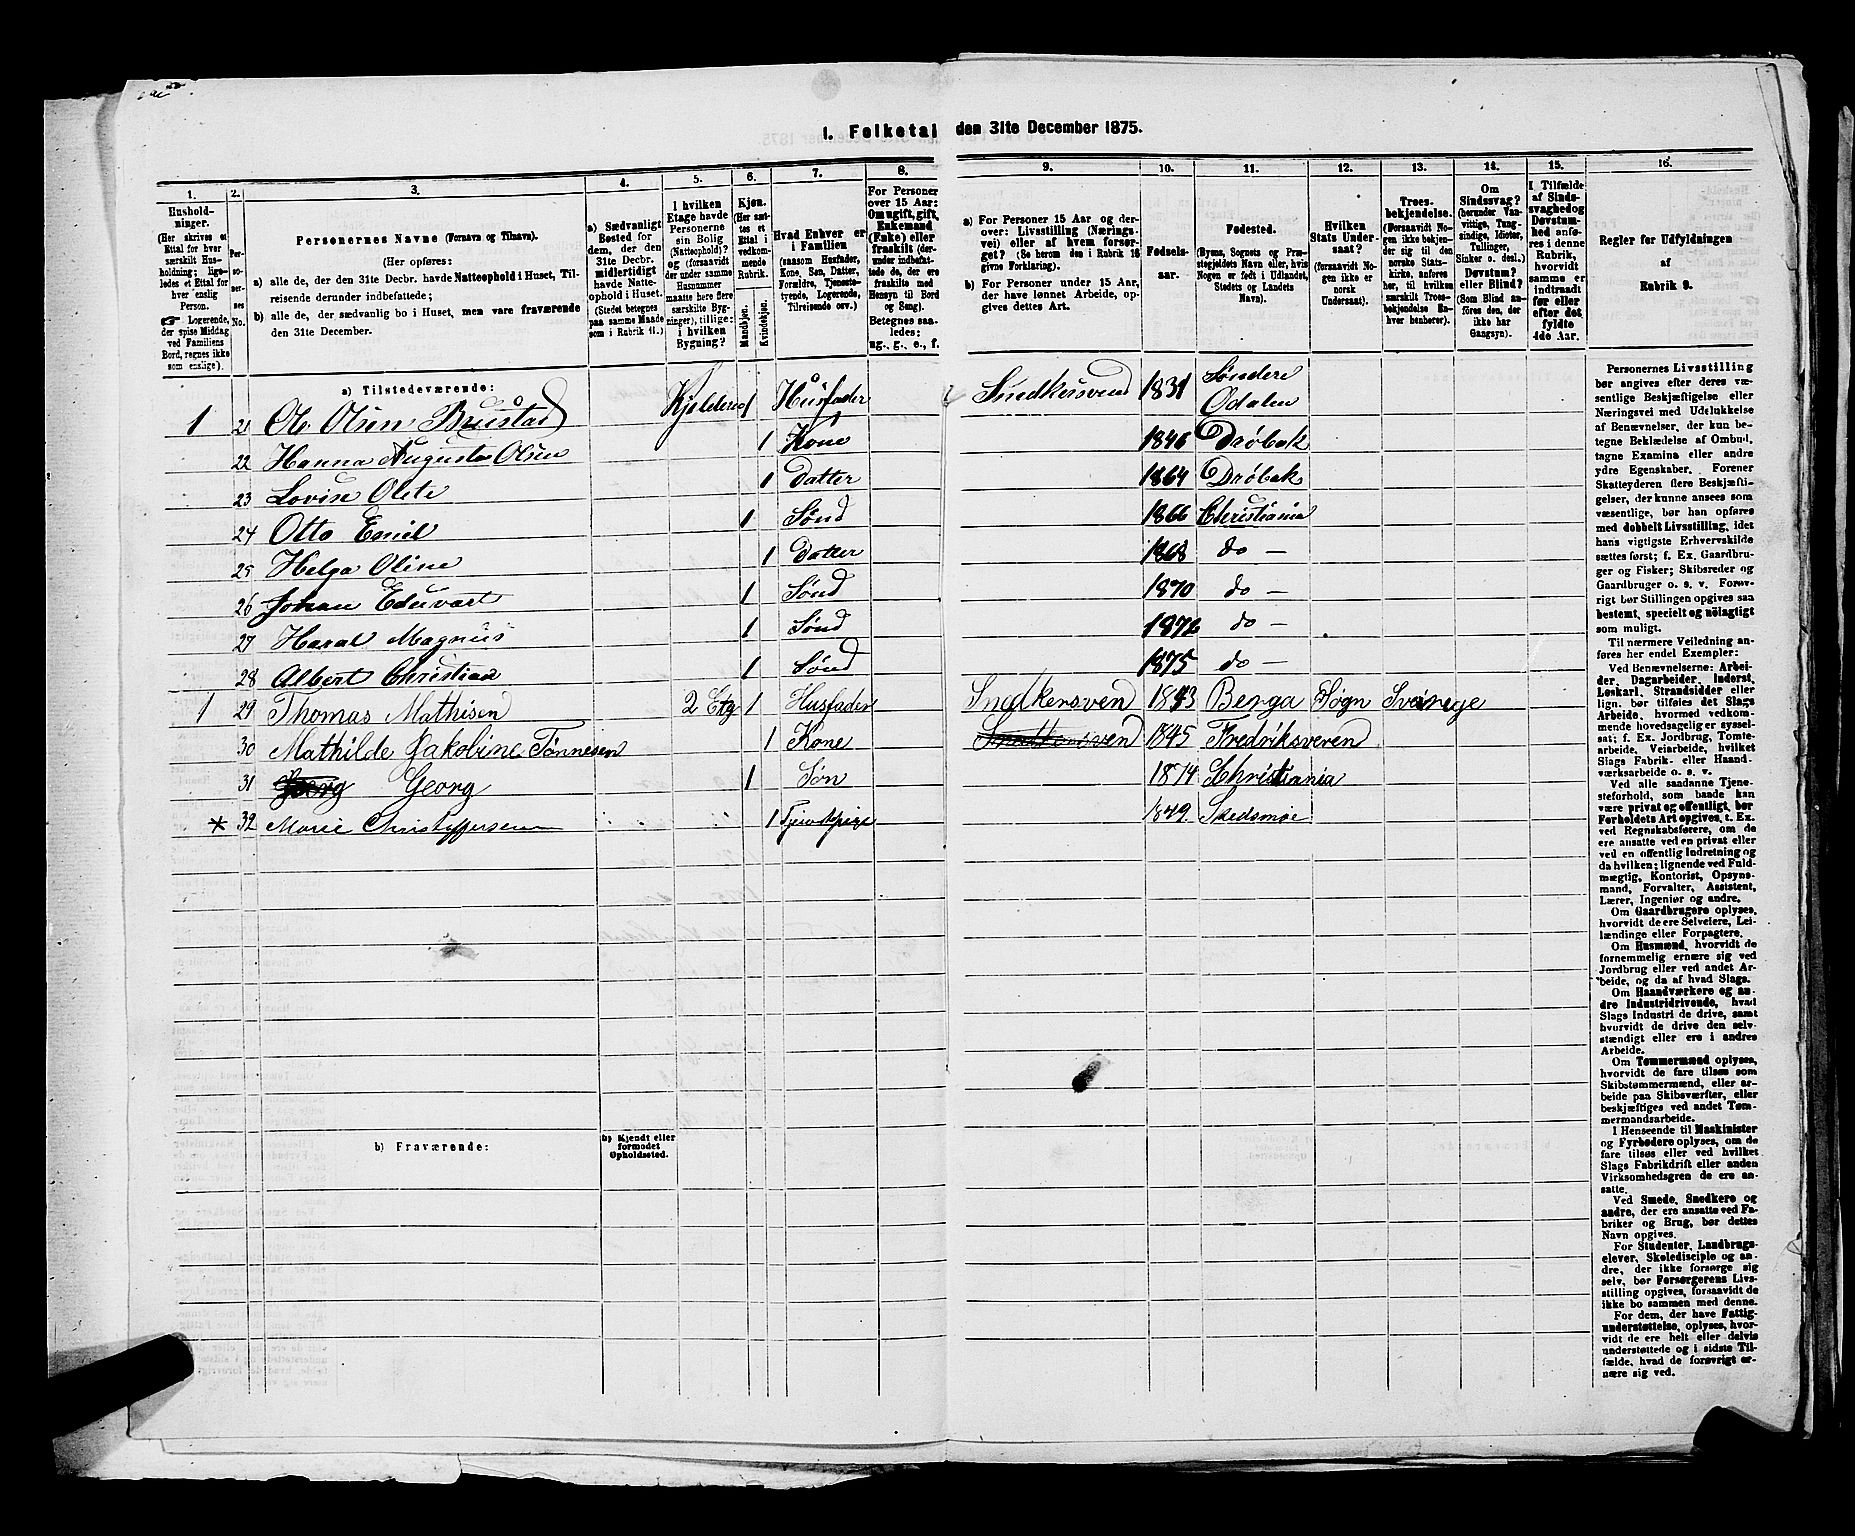 1. Folketal den 31te December 1875.
1. 2. 3. 4. 5. 6. 7. 8. 9. 10. 11. 12. 13. 14. 15. 16.
Hushold-
ninger.
(Her skrives et
Ettal for hver
særskilt Hus-
holdning; lige-
ledes et Ettal for
hver enslig
Person.
☞ Logerende,
der spise Middag
ved Familiens
Bord, regnes ikke
som enslige).
Per-
so-
ner-
nes
No.
Personernes Navne (Fornavn og Tilnavn).
(Her opføres:
a) alle de, der den 31te Decbr. havde Natteophold i Huset, Til-
reisende derunder indbefattede;
b) alle de, der sædvanlig bo i Huset, men vare fraværende
den 31te December.
a) Sædvanligt
Bosted for
dem, der den
31te Decbr.
midlertidigt
havde Natte-
ophold i Huset.
(Stedet betegnes
paa samme Maade
som i Rubrik 11.)
I hvilken
Etage havde
Personerne
sin Bolig
(Natteophold)?
og (forsaavidt
der under samme
Husnummer
maatte høre flere
særskilte Byg-
ninger), tillige:
i hvilken
Bygning?
Kjøn.
(Her sæt-
tes et
Ettal i
vedkom-
mende
Rubrik.
Mandkjøn.
Kvindekjøn.
Hvad Enhver er
i Familien
(saasom Husfader,
Kone, Søn, Datter,
Forældre, Tjeneste-
tyende, Logerende,
Tilreisende osv.)
For Personer
over 15 Aar:
Om ugift, gift,
Enkemand
(Enke) eller
fraskilt (der-
under indbefat-
tede de, der ere
fraskilte med
Hensyn til Bord
og Seng).
Betegnes saa-
ledes:
ug., g., e., f.
a) For Personer 15 Aar og der-
over: Livsstilling (Nærings-
vei) eller af hvem forsør-
get? (Se herom den i Rubrik 16
givne Forklaring).
b) For Personer under 15 Aar,
der have lønnet Arbeide, op-
gives dettes Art.
Fødsels-
aar.
Fødested.
(Byens, Sognets og Præ-
stegjeldets Navn eller, hvis
Nogen er født i Udlandet,
Stedets og Landets
Navn).
Hvilken
Stats Under-
saat?
(forsaavidt No-
gen ikke er
norsk
Undersaat).
Troes-
bekjendelse.
(Forsaavidt No-
gen ikke bekjen-
der sig til den
norske Stats-
kirke, anføres
her, til hvilken
særskilt Troes-
bekjendelse En-
hver henhører).
Om
Sindssvag?
(herunder Van-
vittige, Tung-
sindige, Idioter,
Tullinger,
Sinker o. desl.)
Døvstum?
eller Blind?
(Som Blind an-
føres den, der
ikke har
Gangsyn).
I Tilfælde
af Sinds-
svaghed og
Døvstum-
hed anfø-
res i denne
Rubrik,
hvorvidt
samme er
indtraadt
før eller
efter det
fyldte
4de Aar.
Regler for Udfyldningen
af
Rubrik 9.
a) Tilstedeværende:
1 21 Ole Olsen Kjelderen 1 Husfader Snedkersvend 1831 Søndere Odalen
22 Hanna Augusta Olsen 1 Kone 1846 Drøbak
23 Lovise Olete 1 Datter 1864 Drøbak
24 Otto Emil 1 Sønd 1866 Christiania
25 Helga Oline 1 Datter 1868 do —
26 Johan Eduvart 1 Sønd 1870 do —
27 Haral Magnus 1 Sønd 1872 do —
28 Albert Christian 1 Sønd 1875 do —
1 29 Thomas Mathisen 2 Etg 1 Husfader Snedkersven 1843 Berga Sogn Sverige
30 Mathilde Jakobine Tønnesen 1 Kone Snedkersven 1845 Fredriksveren
31 Georg Georg 1 Søn 1874 Christiania
* 32 Marie Christoffersen 1 Tjenestpige 1849 Skedsmoe
b) Fraværende:
b) Kjendt eller
formodet
Opholdssted.
Personernes Livsstilling
bør angives efter deres væ-
sentlige Beskjæftigelse eller
Næringsvei med Udelukkelse
af Benævnelser, der kun be-
tegne Beklædelse af Ombud,
tagne Examina eller andre
ydre Egenskaber. Forener
Skatteyderen flere Beskjæfti-
gelser, der kunne ansees som
væsentlige, bør han opføres
med dobbelt Livsstilling, idet
hans vigtigste Erhvervskilde
sættes først; f. Ex. Gaardbru-
ger og Fisker; Skibsreder og
Gaardbruger o. s. v. Forøv-
rigt bør Stillingen opgives saa
bestemt, specielt og nöiagtigt
som muligt.
Til nærmere Veiledning an-
føres her endel Exempler:
Ved Benævnelserne: Arbei-
der, Dagarbeider, Inderst,
Løskarl, Strandsidder eller
lign. bør tilføies det Slags
Arbeide, hvormed vedkom-
mende hovedsagelig er syssel-
sat; f. Ex. Jordbrug, Tomte-
arbeide, Veiarbeide, hvilket
Slags Fabrik- eller Haand-
værksarbeide o. s. v.
Ved alle saadanne Tjene-
steforhold, som baade kan
være privat og offentligt, bør
Forholdets Art opgives, t. Ex.
ved Regnskabsførere, om de
ere ansatte ved en privat eller
ved en offentlig Indretning og
da hvilken; lignende ved Fuld-
mægtig, Kontorist, Opsyns-
mand, Forvalter, Assistent,
Lærer, Ingeniør og andre.
Om Gaardbrugere oplyses,
hvorvidt de ere Selveiere, Lei-
lændinge eller Forpagtere.
Om Husmænd, hvorvidt de
fornemmelig ernære sig ved
Jordbrug eller ved andet Ar-
beide, og da af hvad Slags.
Om Haandværkere og an-
dre Industridrivende, hvad
Slags Industri de drive, samt
hvorvidt de drive den selv-
stændigt eller ere i andres
Arbeide.
Om Tømmermænd oplyses,
hvorvidt de fare tilsøs som
Skibstømmermænd, eller ar-
beide paa Skibsværfter, eller
beskjæftiges ved andet Tøm-
mermandsarbeide.
I Henseende til Maskinister
og Fyrbødere oplyses, om de
fare tilsøs eller ved hvilket
Slags Fabrikdrift eller anden
Virksomhedsgren de ere an-
satte.
Ved Smede, Snedkere og
andre, der ere ansatte ved Fa-
briker og Brug, bør dettes
Navn opgives.
For Studenter, Landbrugs-
elever, Skoledisciple og an-
dre, der ikke forsørge sig
selv, bør Forsørgerens Livs-
stilling opgives, forsaavidt de
ikke bo sammen med denne.
For dem, der have Fattig-
understøttelse, oplyses, hvor-
vidt de ere helt eller delvis
understøttede og i sidste Til-
fælde, hvad de forøvrigt er-
nære sig ved.